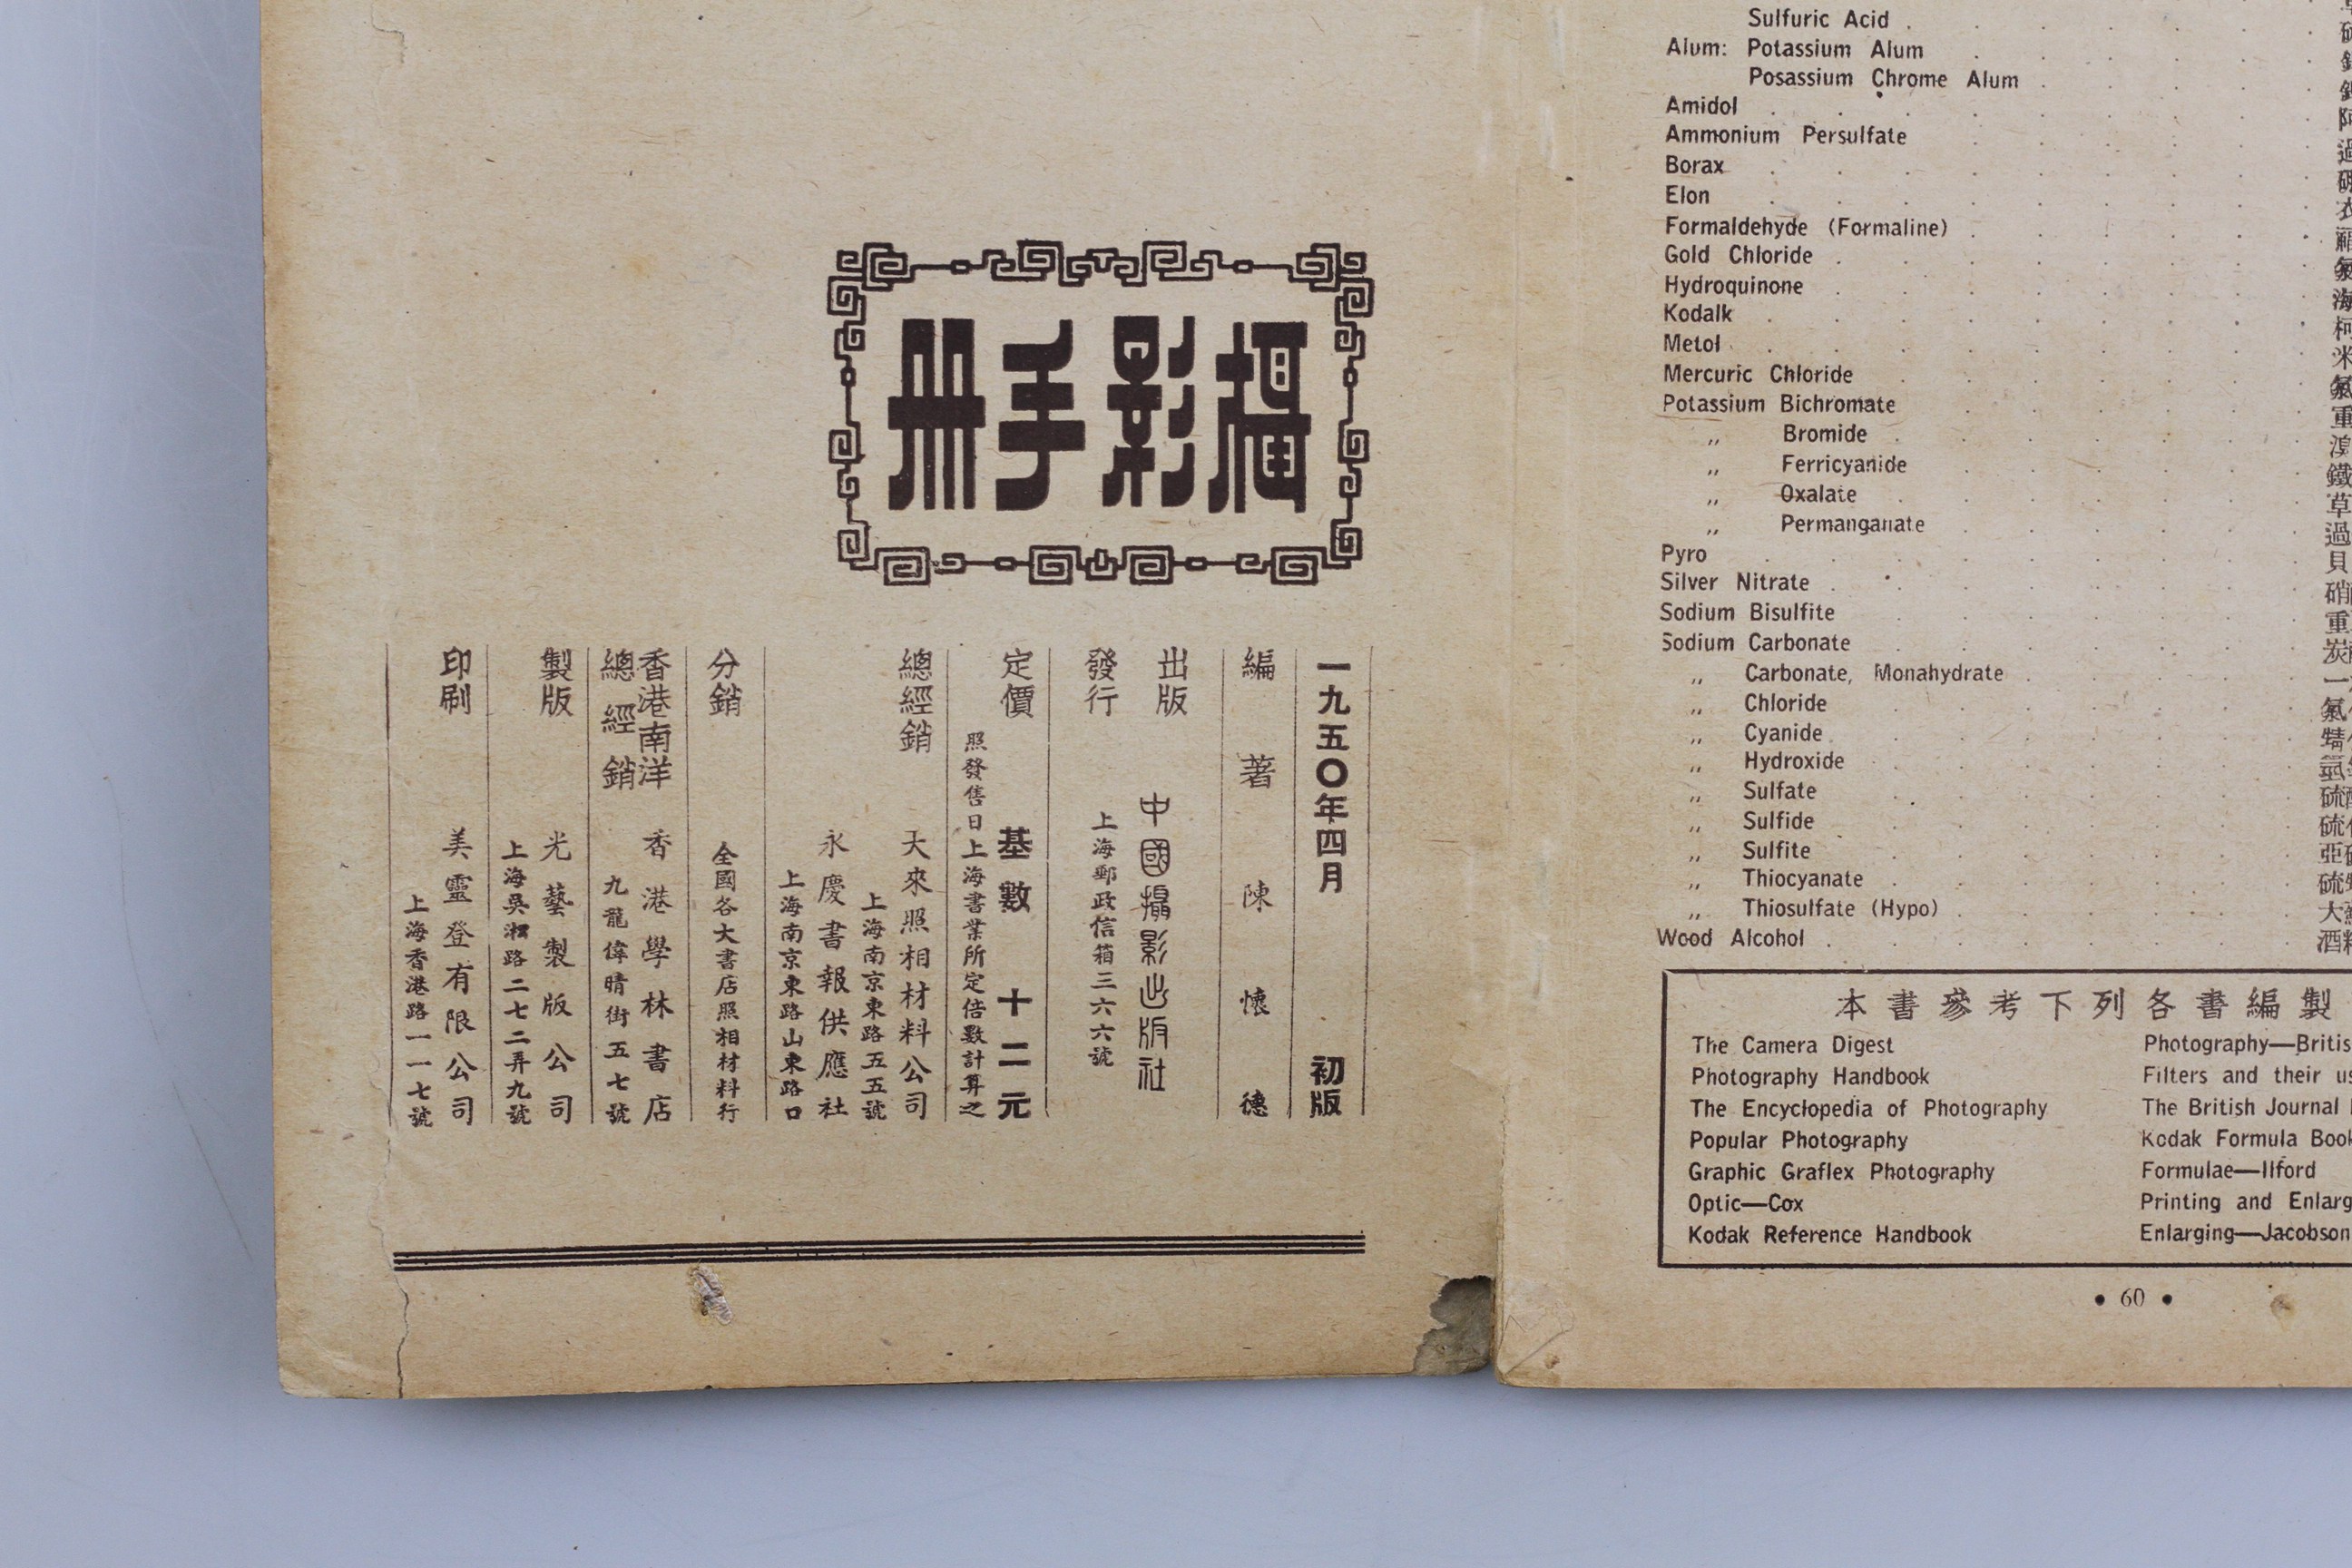 攝影手冊
一九五〇年四月 初版
編著 陳懷德
出版
發行
中國攝影出版社
上海郵政信箱三六六號
定價 基數 十二元
照發售日上海書業所定倍數計算之
總經銷 天來照相材料公司
上海南京東路五五號
永慶書報供應社
上海南京東路山東路口
分銷 全國各大書店照相材料行
香港南洋
總經銷
香港學林書店
九龍偉晴街五七號
製版 光藝製版公司
上海吳淞路二七二弄九號
印刷 美靈登有限公司
上海香港路一一七號
Sulfuric Acid
Alum: Potassium Alum
Posassium Chrome Alum
Amidol
Ammonium Persulfate
Borax
Elon
Formaldehyde (Formaline)
Gold Chloride
Hydroquinone
Kodalk
Metol
Mercuric Chloride
Potassium Bichromate
,, Bromide
,, Ferricyanide
,, Oxalate
,, Permanganate
Pyro
Silver Nitrate
Sodium Bisulfite
Sodium Carbonate
,, Carbonate, Monahydrate
,, Chloride
,, Cyanide
,, Hydroxide
,, Sulfate
,, Sulfide
,, Sulfite
,, Thiocyanate
,, Thiosulfate (Hypo)
Wood Alcohol
本書參考下列各書編製
The Camera Digest
Photography Handbook
The Encyclopedia of Photography
Popular Photography
Graphic Graflex Photography
Optic—Cox
Kodak Reference Handbook
Photography—Britis
Filters and their us
The British Journal
Kodak Formula Book
Formulae—Ilford
Printing and Enlarg
Enlarging—Jacobson
• 60 •